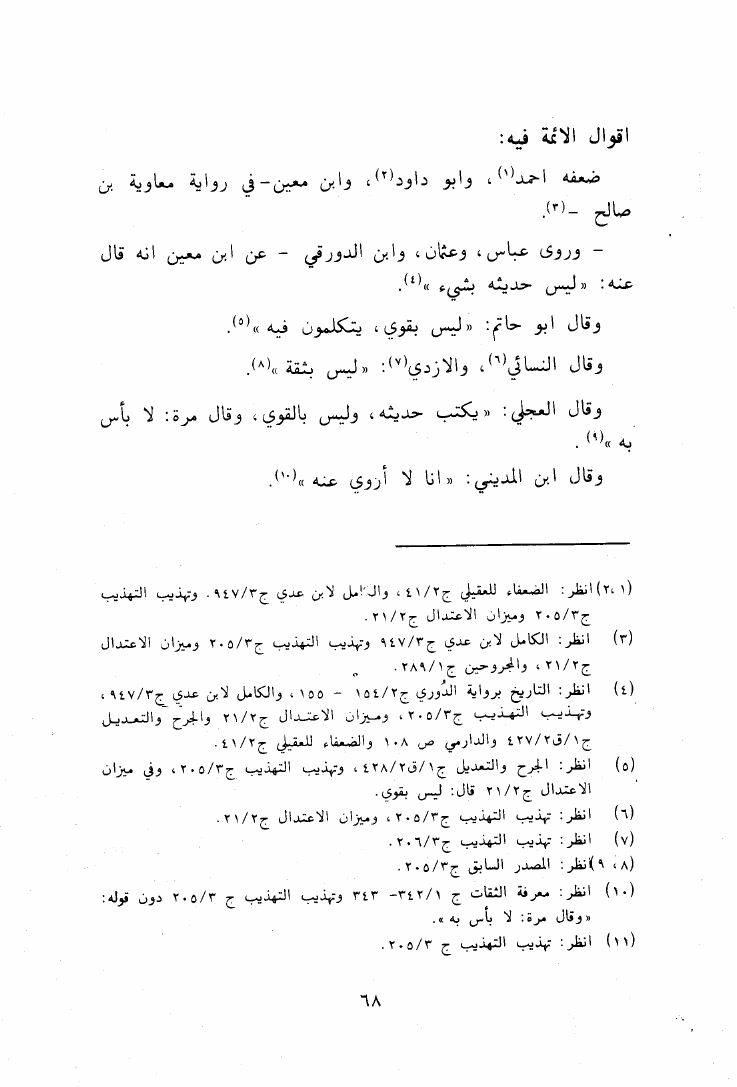 اقوال الائمة فيه:
ضعفه احمد(١)، وابو داود(٢)، وابن معين-في رواية معاوية بن
صالح -(٣).
- وروى عباس، وعثمان، وابن الدورقي - عن ابن معين انه قال
عنه: «ليس حديثه بشيء»(٤).
وقال ابو حاتم: «ليس بقوي، يتكلمون فيه»(٥).
وقال النسائي(٦)، والازدي(٧): «ليس بثقة»(٨).
وقال العجلي: «يكتب حديثه، وليس بالقوي، وقال مرة: لا بأس
به»(٩).
وقال ابن المديني: «انا لا أروي عنه»(١٠).
(١، ٢) انظر: الضعفاء للعقيلي ج٤١/٢، والكامل لابن عدي ج٩٤٧/٣. وتهذيب التهذيب
ج٢٠٥/٣ وميزان الاعتدال ج٢١/٢.
(٣) انظر: الكامل لابن عدي ج٩٤٧/٣ وتهذيب التهذيب ج٢٠٥/٣ وميزان الاعتدال
ج٢١/٢، والمجروحين ج٢٨٩/١.
(٤) انظر: التاريخ برواية الدُوري ج١٥٤/٢ - ١٥٥، والكامل لابن عدي ج٩٤٧/٣،
وتهذيب التهذيب ج٢٠٥/٣، وميزان الاعتدال ج٢١/٢ والجرح والتعديل
ج١/ق٤٢٧/٢ والدارمي ص ١٠٨ والضعفاء للعقيلي ج٤١/٢.
(٥) انظر: الجرح والتعديل ج١/ق٤٢٨/٢، وتهذيب التهذيب ج٢٠٥/٣، وفي ميزان
الاعتدال ج٢١/٢ قال: ليس بقوي.
(٦) انظر: تهذيب التهذيب ج٢٠٥/٣، وميزان الاعتدال ج٢١/٢.
(٧) انظر: تهذيب التهذيب ج٢٠٦/٣.
(٨، ٩) انظر: المصدر السابق ج٢٠٥/٣.
(١٠) انظر: معرفة الثقات ج ٣٤٢/١- ٣٤٣ وتهذيب التهذيب ج ٢٠٥/٣ دون قوله:
«وقال مرة: لا بأس به».
(١١) انظر: تهذيب التهذيب ج ٢٠٥/٣.
٦٨